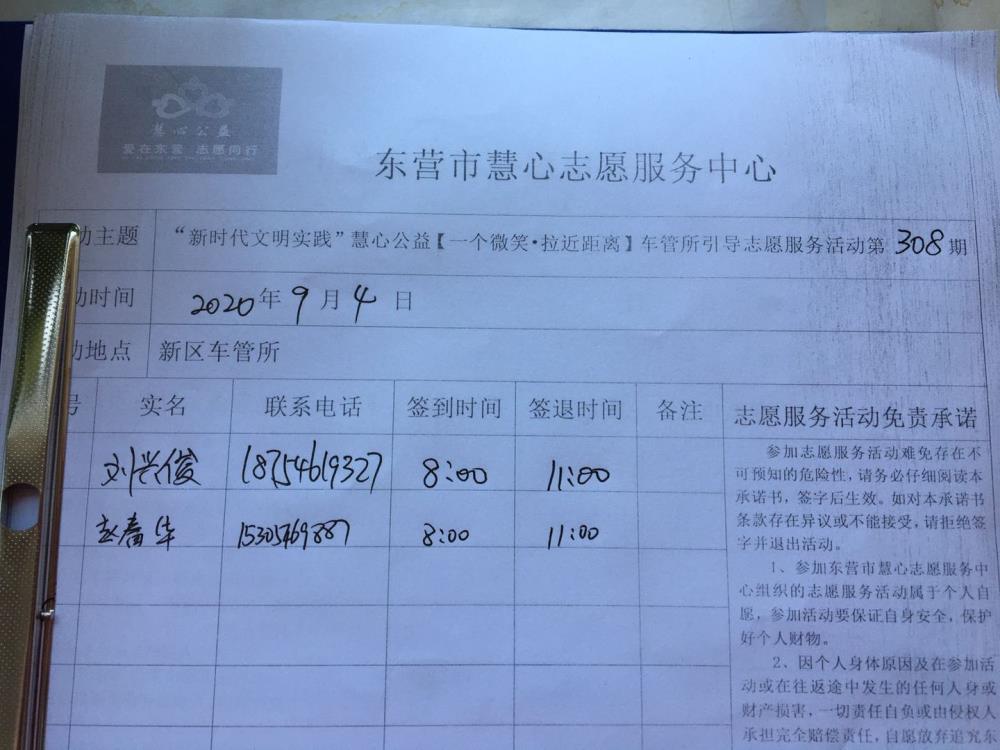 慧心公益
爱在东营 志愿同行
东营市慧心志愿服务中心
动主题 “新时代文明实践”慧心公益【一个微笑·拉近距离】车管所引导志愿服务活动第 308 期
动时间 2020年9月4日
动地点 新区车管所
号 实名 联系电话 签到时间 签退时间 备注
刘兴俊 18754619327 8:00 11:00
赵春华 8:00 11:00
志愿服务活动免责承诺
参加志愿服务活动难免存在不
可预知的危险性，请务必仔细阅读本
承诺书，签字后生效。如对本承诺书
条款存在异议或不能接受，请拒绝签
字并退出活动。
1、参加东营市慧心志愿服务中
心组织的志愿服务活动属于个人自
愿，参加活动要保证自身安全，保护
好个人财物。
2、因个人身体原因及在参加活
动或在往返途中发生的任何人身或
财产损害，一切责任自负或由侵权人
承担完全赔偿责任，自愿放弃追究东